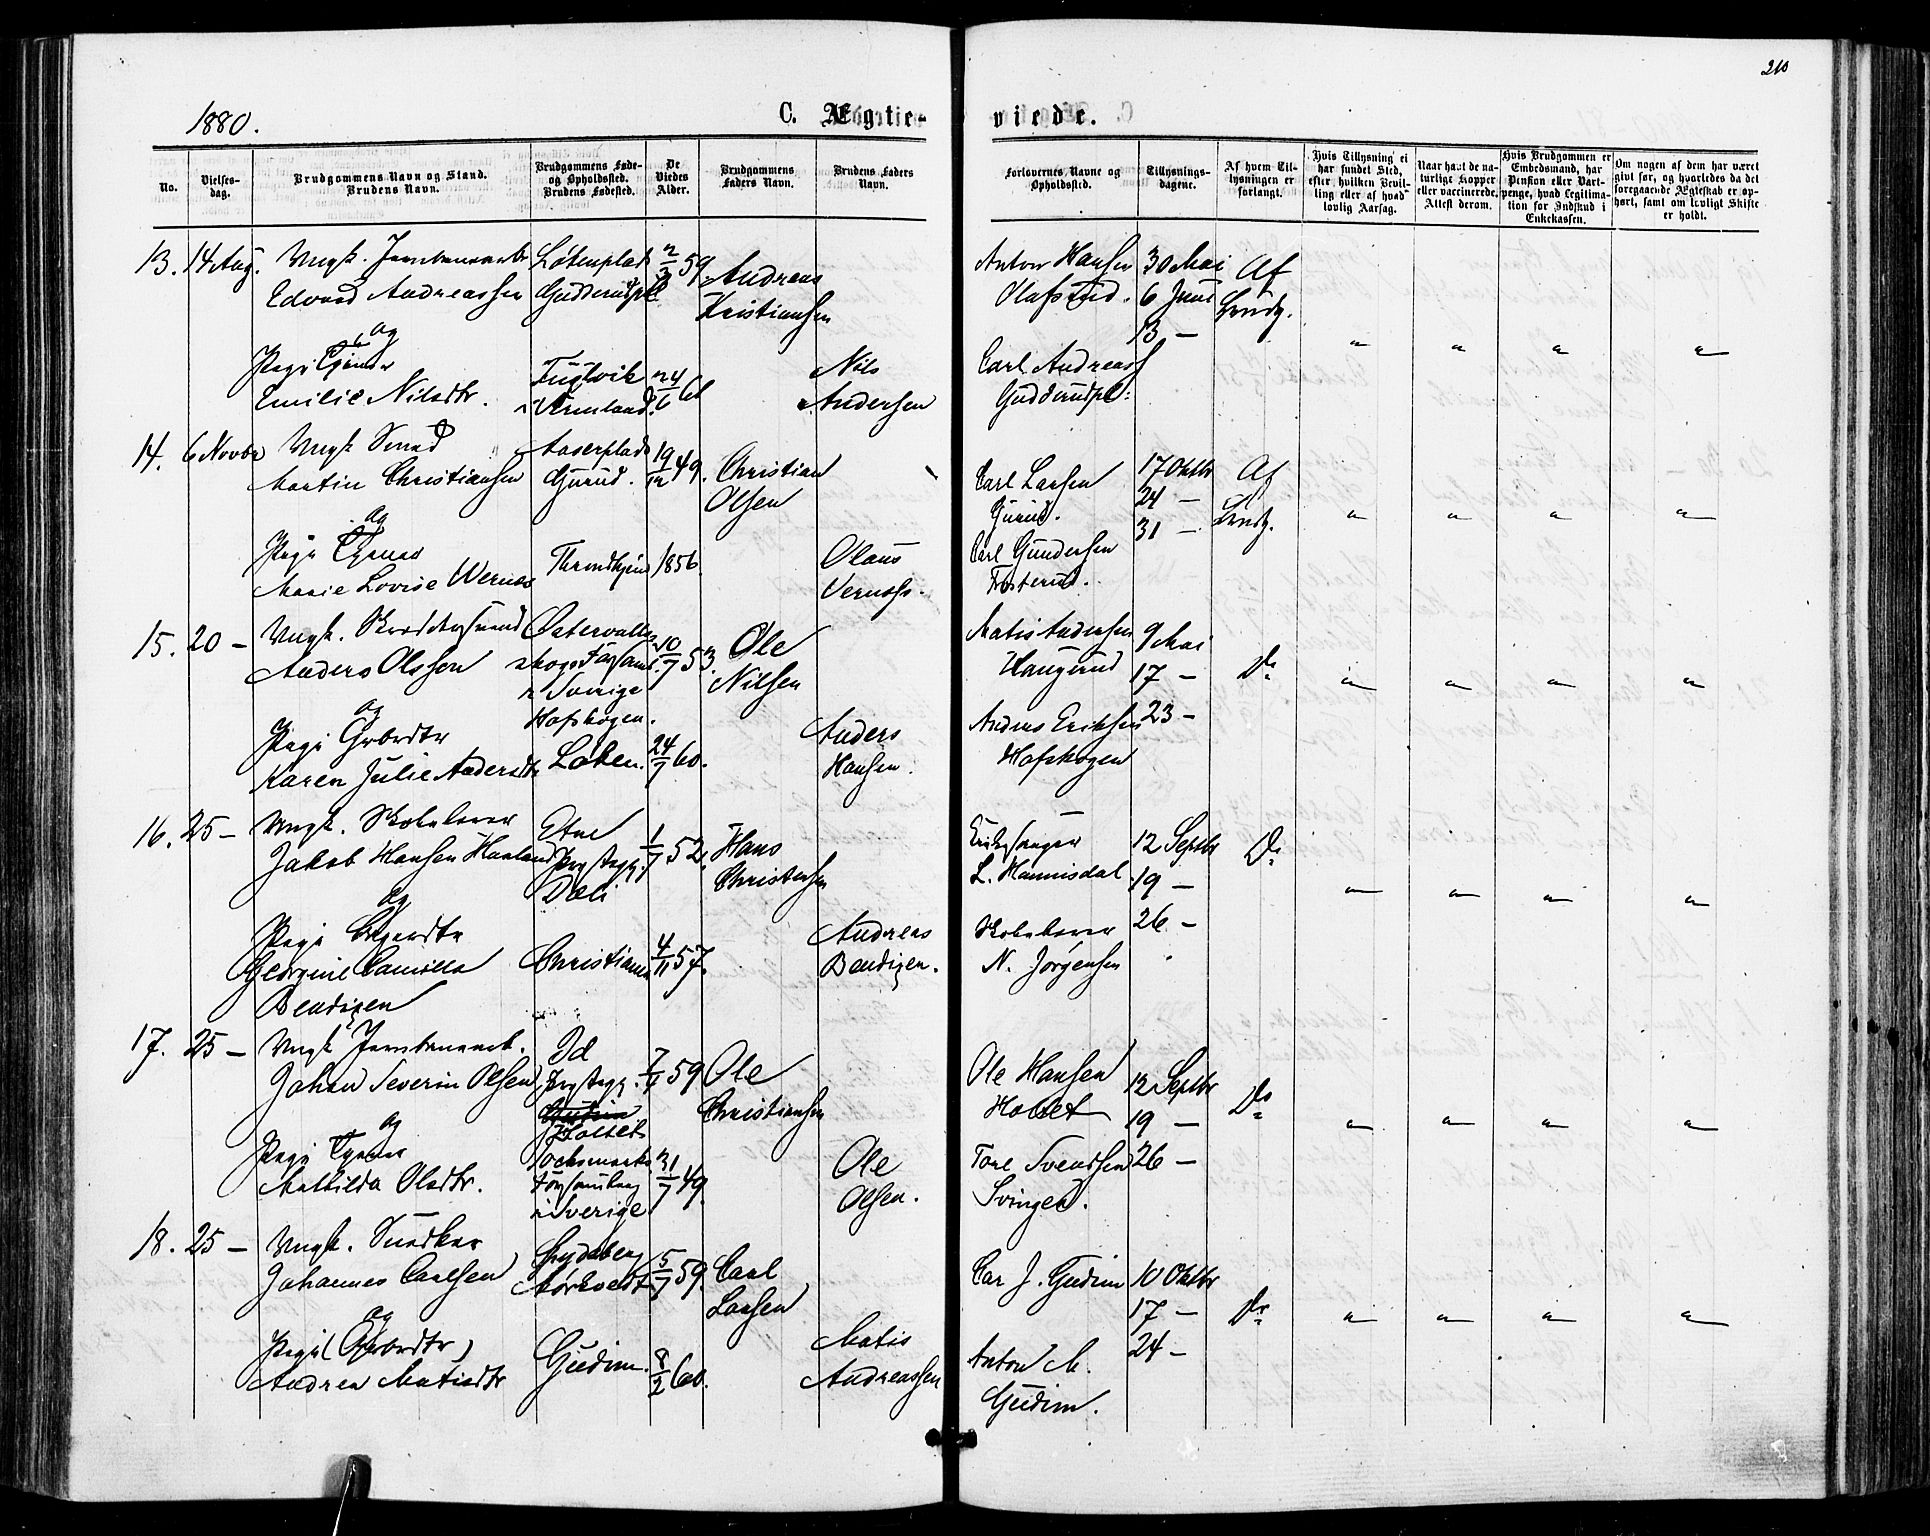 210
1880.
C. Ægte-
viede.
No.
Vielses-
dag.
Brudgommens Navn og Stand.
Brudens Navn.
Brudgommens Føde-
og Opholdssted.
Brudens Fødested.
De
Viedes
Alder.
Brudgommens
Faders Navn.
Brudens Faders
Navn.
Forlovernes Navne og
Opholdssted.
Tillysnings-
dagene.
Af hvem Til-
lysningen er
forlangt.
Hvis Tillysning ei
har fundet Sted,
efter hvilken Bevil-
ling eller af hvad
lovlig Aarsag.
Naar havt de na-
turlige Kopper
eller vaccinerede.
Attest derom.
Hvis Brudgommen er
Embedsmand, har
Pension eller Vart-
penge, hvad Legitima-
tion for Indskud i
Enkekassen.
Om nogen af dem har været
givt før, og hvorledes da det
foregaaende Ægteskab er op-
hørt, samt om lovligt Skifte
er holdt.
13. 14 Aug. Ungk. Jernbanearb.
Edvard Andreassen
og
Pige
Emilie Nilsdtr.
Guderudpl.
2/3 59
Andreas
Kristiansen
i Vermland
24/6 61
Nils
Andersen
Anton Hansen
Olafsrud.
Carl Andreass
Guderudpl:
30 Mai
6 Juni
13 —
Af
Brudg.
" " " "
14. 6 Novbr Ungk. Smed
Martin Christiansen
og
Pige
Marie Lovise Wernes
Gurud.
Throndhjem
19/12 49.
1856.
Christian
Olsen
Olaus
Carl Larsen
Gurud.
Carl Gundersen
17 Oktbr
24 —
31 —
Af
Brudg.
" " " "
15. 20 — Ungk. Skræddersvend
Anders Olsson
og
Pige Gbrdtr
Karen Julie Andersdtr
i Sverige
Hofskogen.
10/7 53.
24/7 60.
Ole
Nilsen
Anders
Hansen.
Matis Andersen
Haugerud
Anders Eriksen
Hofskogen
9 Mai
17 —
23 —
Do
" " " "
16. 25 — Ungk. Skolelærer
Jakob Hansen Haaland
og
Pige
Georgine Camilla
Bendixen
Etne
Prgstegj.
Christiania
1/7 52.
4/11 57.
Hans
Christensen
Andreas
Bendixen.
Kirkesanger
L. Hannisdal
Skolelærer
N. Jørgensen
12 Septbr
19 —
26 —
Do
" " " "
17. 25 — Ungk. Jernbanearb.
Johan Severin Olsen
og
Pige
Mathilda Olsdtr.
Id
Prgstegj.
Holset
Forsamling
i Sverige
7/4 59
31/7 49.
Ole
Christiansen
Ole
Olsen.
Ole Hansen
Holset
Tore Svendsen
Svingen.
12 Septbr
19 —
26 —
Do
" " " "
18. 25 — Ungk. Snedker
Johannes Carlsen
og
Pige (Gbrdtr)
Andrea Matisdtr
Spydeberg
Mørkvedt
Gudim.
5/7 59.
8/2 60.
Carl
Larsen
Matis
Andreassen
Car J. Gudim
Anton M.
Gudim.
10 Oktbr
17 —
24 —
Do
" " " "